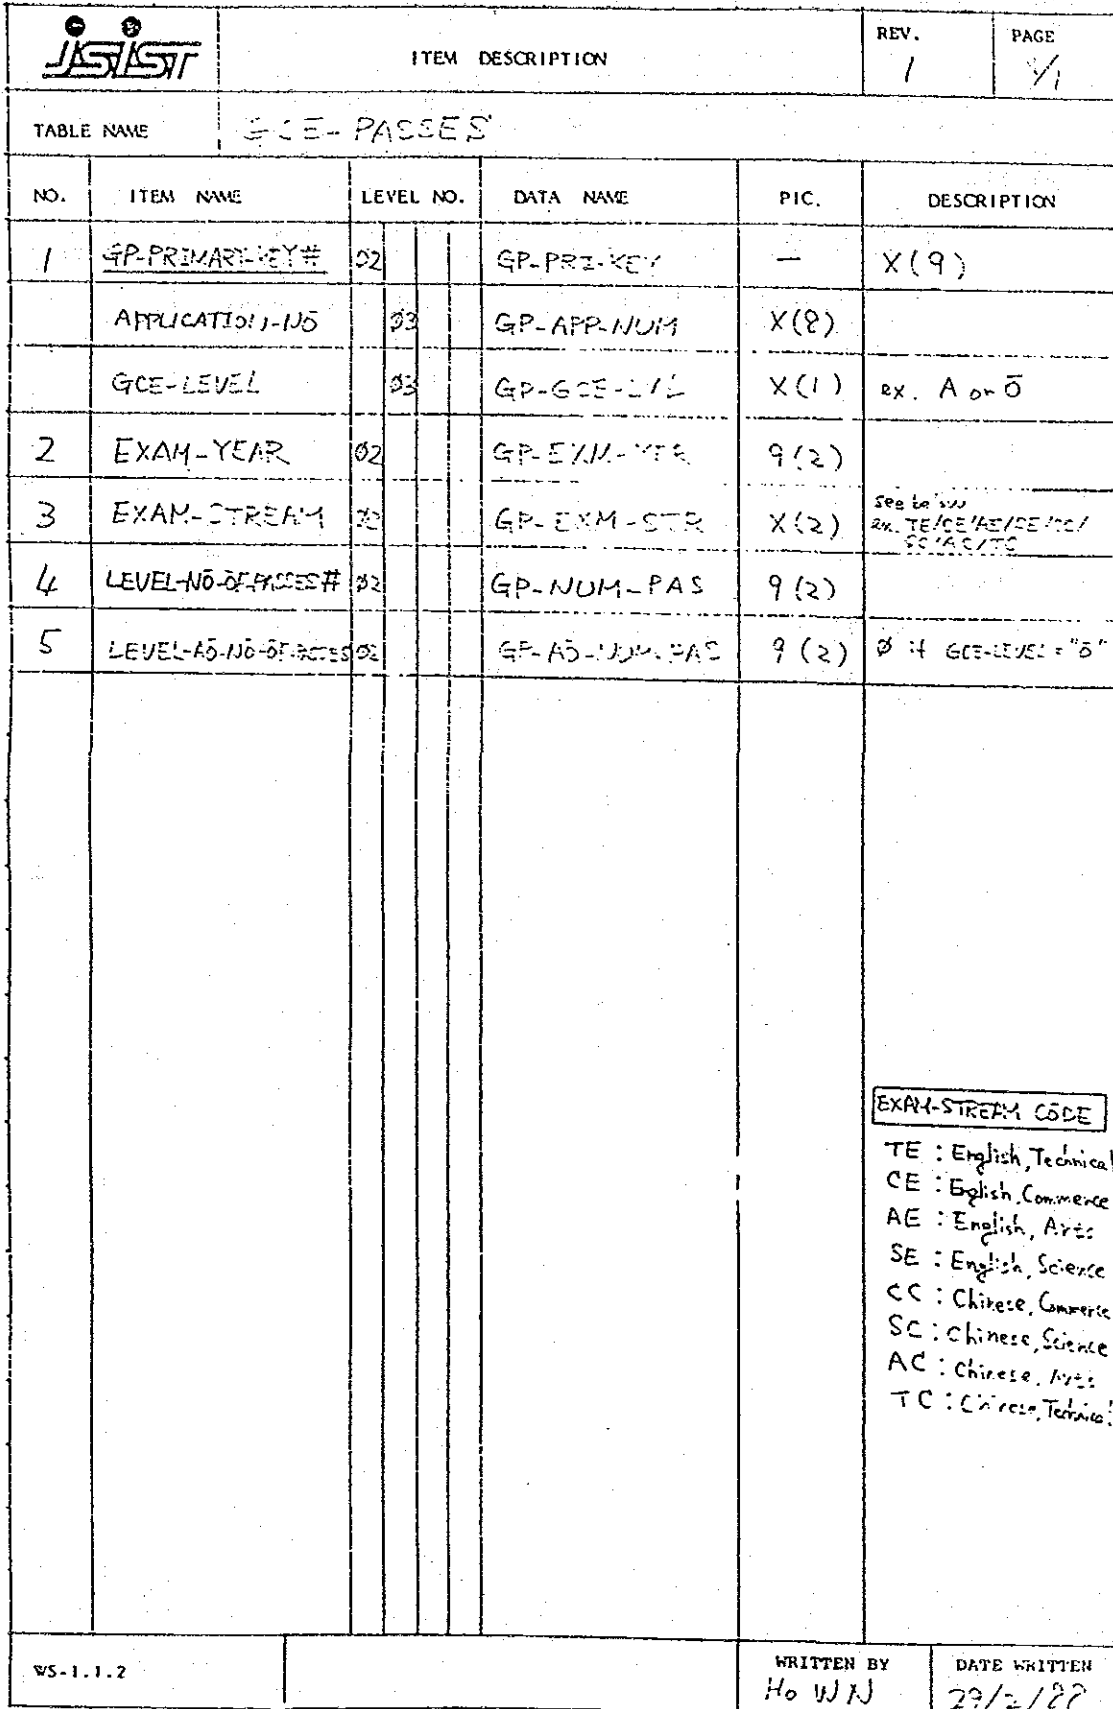 JSIST
ITEM DESCRIPTION
REV.
1
PAGE
1/1
TABLE NAME
GCE-PASSES
NO. ITEM NAME LEVEL NO. DATA NAME PIC. DESCRIPTION
1 GP-PRIMARY-KEY# 02 GP-PRI-KEY — X(9)
APPLICATION-NŌ 03 GP-APP-NUM X(8)
GCE-LEVEL 03 GP-GCE-LVL X(1) ex. A or Ō
2 EXAM-YEAR 02 GP-EXM-YER 9(2)
3 EXAM-STREAM 02 GP-EXM-STR X(2) see below
ex. TE/CE/AE/SE/CC/
SC/AC/TC
4 LEVEL-NŌ-ŌF-PASSES# 02 GP-NUM-PAS 9(2)
5 LEVEL-AŌ-NŌ-ŌF-PASSES 02 GP-AŌ-NUM-PAS 9(2) Ø if GCE-LEVEL = "Ō"
EXAM-STREAM CŌDE
TE : English, Technical
CE : English, Commerce
AE : English, Arts
SE : English, Science
CC : Chinese, Commerce
SC : Chinese, Science
AC : Chinese, Arts
TC : Chinese, Technical
WS-1.1.2
WRITTEN BY
Ho WN
DATE WRITTEN
29/2/88